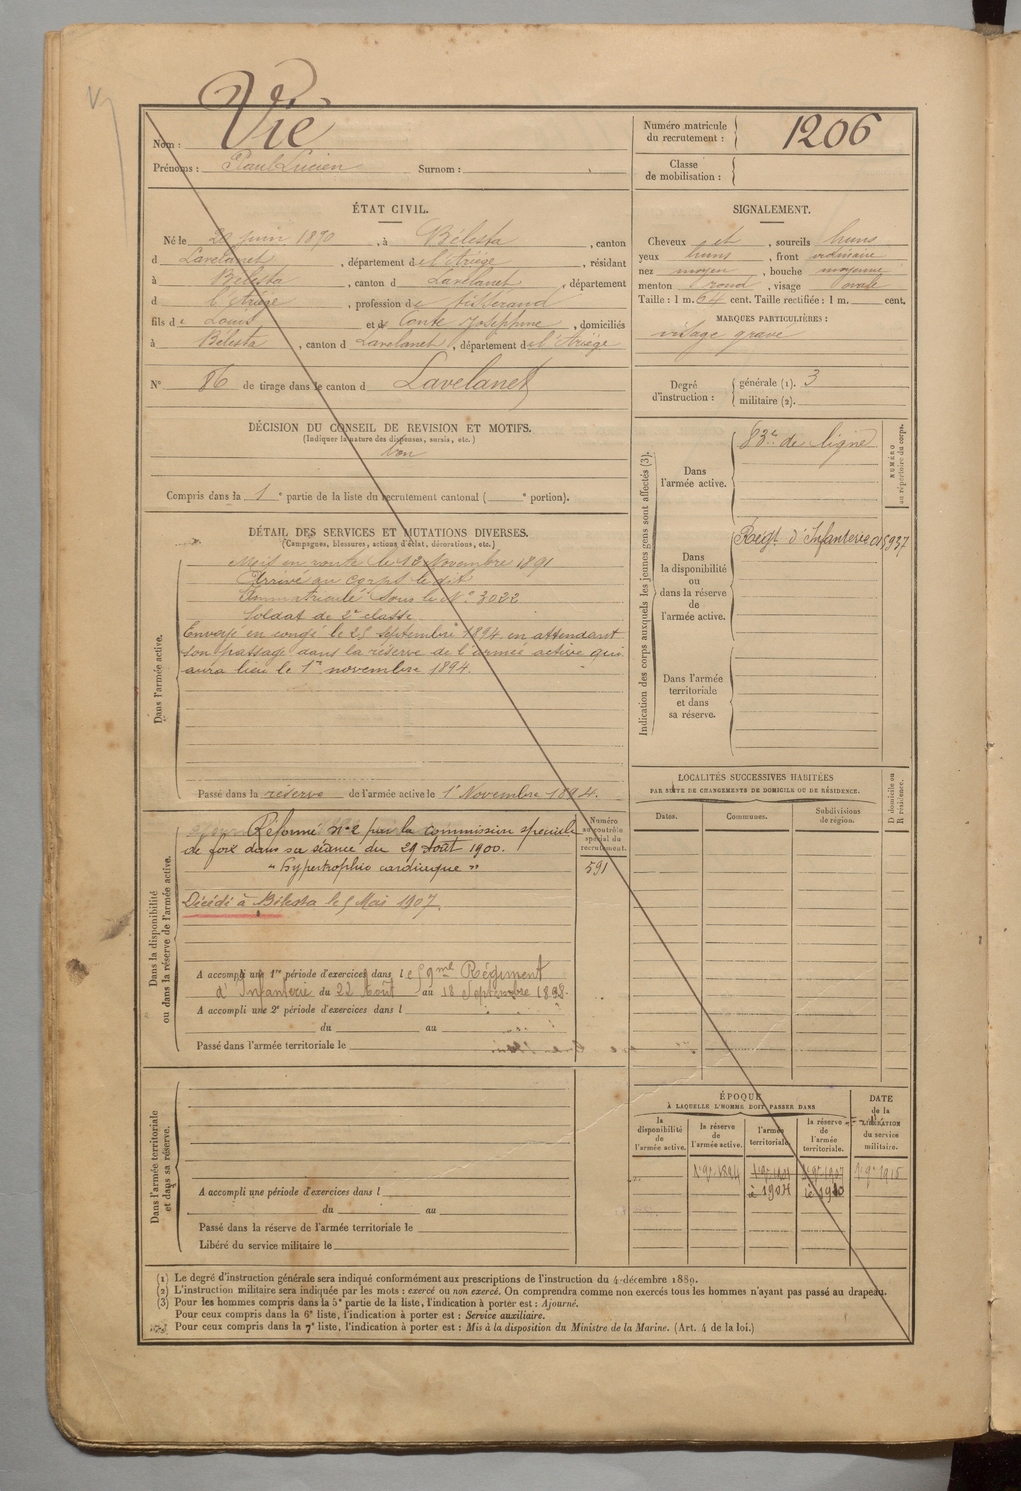 Nom : Vié
Prénoms : Paul Lucien Surnom :
Numéro matricule du recrutement : 1206
Classe de mobilisation :
ÉTAT CIVIL.
Né le 20 juin 1870, à Bélesta, canton
d Lavelanet, département de l'Ariège, résidant
à Bélesta, canton d Lavelanet, département
d l'Ariège, profession de tisserand
fils de Louis et de Conte Joséphine, domiciliés
à Bélesta, canton d Lavelanet, département de l'Ariège
N° 86 de tirage dans le canton d Lavelanet
SIGNALEMENT.
Cheveux et, sourcils bruns
yeux bruns, front ordinaire
nez moyen, bouche moyenne
menton rond, visage ovale
Taille : 1 m. 64 cent. Taille rectifiée : 1 m. cent.
MARQUES PARTICULIÈRES :
visage gravé
Degré d'instruction : générale (1). 3
militaire (2).
DÉCISION DU CONSEIL DE REVISION ET MOTIFS.
(Indiquer la nature des dispenses, sursis, etc.)
bon
Compris dans la 1e partie de la liste du recrutement cantonal ( e portion).
DÉTAIL DES SERVICES ET MUTATIONS DIVERSES.
(Campagnes, blessures, actions d'éclat, décorations, etc.)
Dans l'armée active.
Mis en route le 13 Novembre 1891
Arrivé au corps le dit
Immatriculé sous le N° 3022
Soldat de 2e classe
Envoyé en congé le 25 septembre 1894 en attendant
son passage dans la réserve de l'armée active qui
aura lieu le 1er novembre 1894.
Passé dans la réserve de l'armée active le 1er Novembre 1894.
Indication des corps auxquels les jeunes gens sont affectés (3).
NUMÉRO au répertoire du corps.
Dans l'armée active.
83e de ligne
Dans la disponibilité ou dans la réserve de l'armée active.
Régt d'Infanterie
5937
Dans l'armée territoriale et dans sa réserve.
LOCALITÉS SUCCESSIVES HABITÉES
PAR SUITE DE CHANGEMENTS DE DOMICILE OU DE RÉSIDENCE.
D domicile ou R résidence.
Dates.
Communes.
Subdivisions de région.
Dans la disponibilité ou dans la réserve de l'armée active.
Numéro au contrôle spécial du recrutement.
591
Réformé n° 2 par la commission spéciale
de foix dans sa séance du 29 août 1900.
"Hypertrophie cardiaque"
Décédé à Bélesta le 5 Mai 1907.
A accompli une 1re période d'exercices dans le 59me Régiment
d'Infanterie du 22 Août au 18 Septembre 1898.
A accompli une 2e période d'exercices dans l
du au
Passé dans l'armée territoriale le
Dans l'armée territoriale et dans sa réserve.
A accompli une période d'exercices dans l
du au
Passé dans la réserve de l'armée territoriale le
Libéré du service militaire le
ÉPOQUE
À LAQUELLE L'HOMME DOIT PASSER DANS
DATE de la LIBÉRATION du service militaire.
la disponibilité de l'armée active.
la réserve de l'armée active.
l'armée territoriale.
la réserve de l'armée territoriale.
1er 9bre 1894
(1) Le degré d'instruction générale sera indiqué conformément aux prescriptions de l'instruction du 4 décembre 1889.
(2) L'instruction militaire sera indiquée par les mots : exercé ou non exercé. On comprendra comme non exercés tous les hommes n'ayant pas passé au drapeau.
(3) Pour les hommes compris dans la 5e partie de la liste, l'indication à porter est : Ajourné.
Pour ceux compris dans la 6e liste, l'indication à porter est : Service auxiliaire.
Pour ceux compris dans la 7e liste, l'indication à porter est : Mis à la disposition du Ministre de la Marine. (Art. 4 de la loi.)